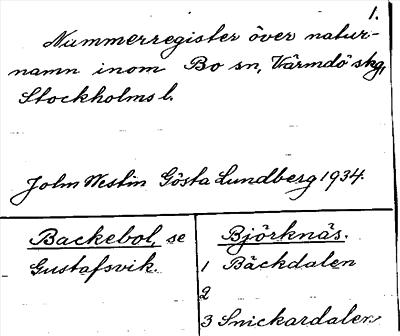 1.
Nummerregister över natur-
namn inom Bo sn, Värmdö skg,
Stockholms l.
John Westin Gösta Lundberg 1934.
Backebol, se
Gustafsvik.
Björknäs.
1 Bäckdalen
2
3 Snickardalen